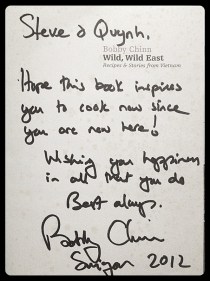 Steve & Quynh,
Bobby Chinn
Wild, Wild East
Recipes & Stories from Vietnam
Hope this book inspires
you to cook now since
you are now here!
Wishing you happiness
in all that you do
Best always.
Bobby Chinn
Saigon 2012